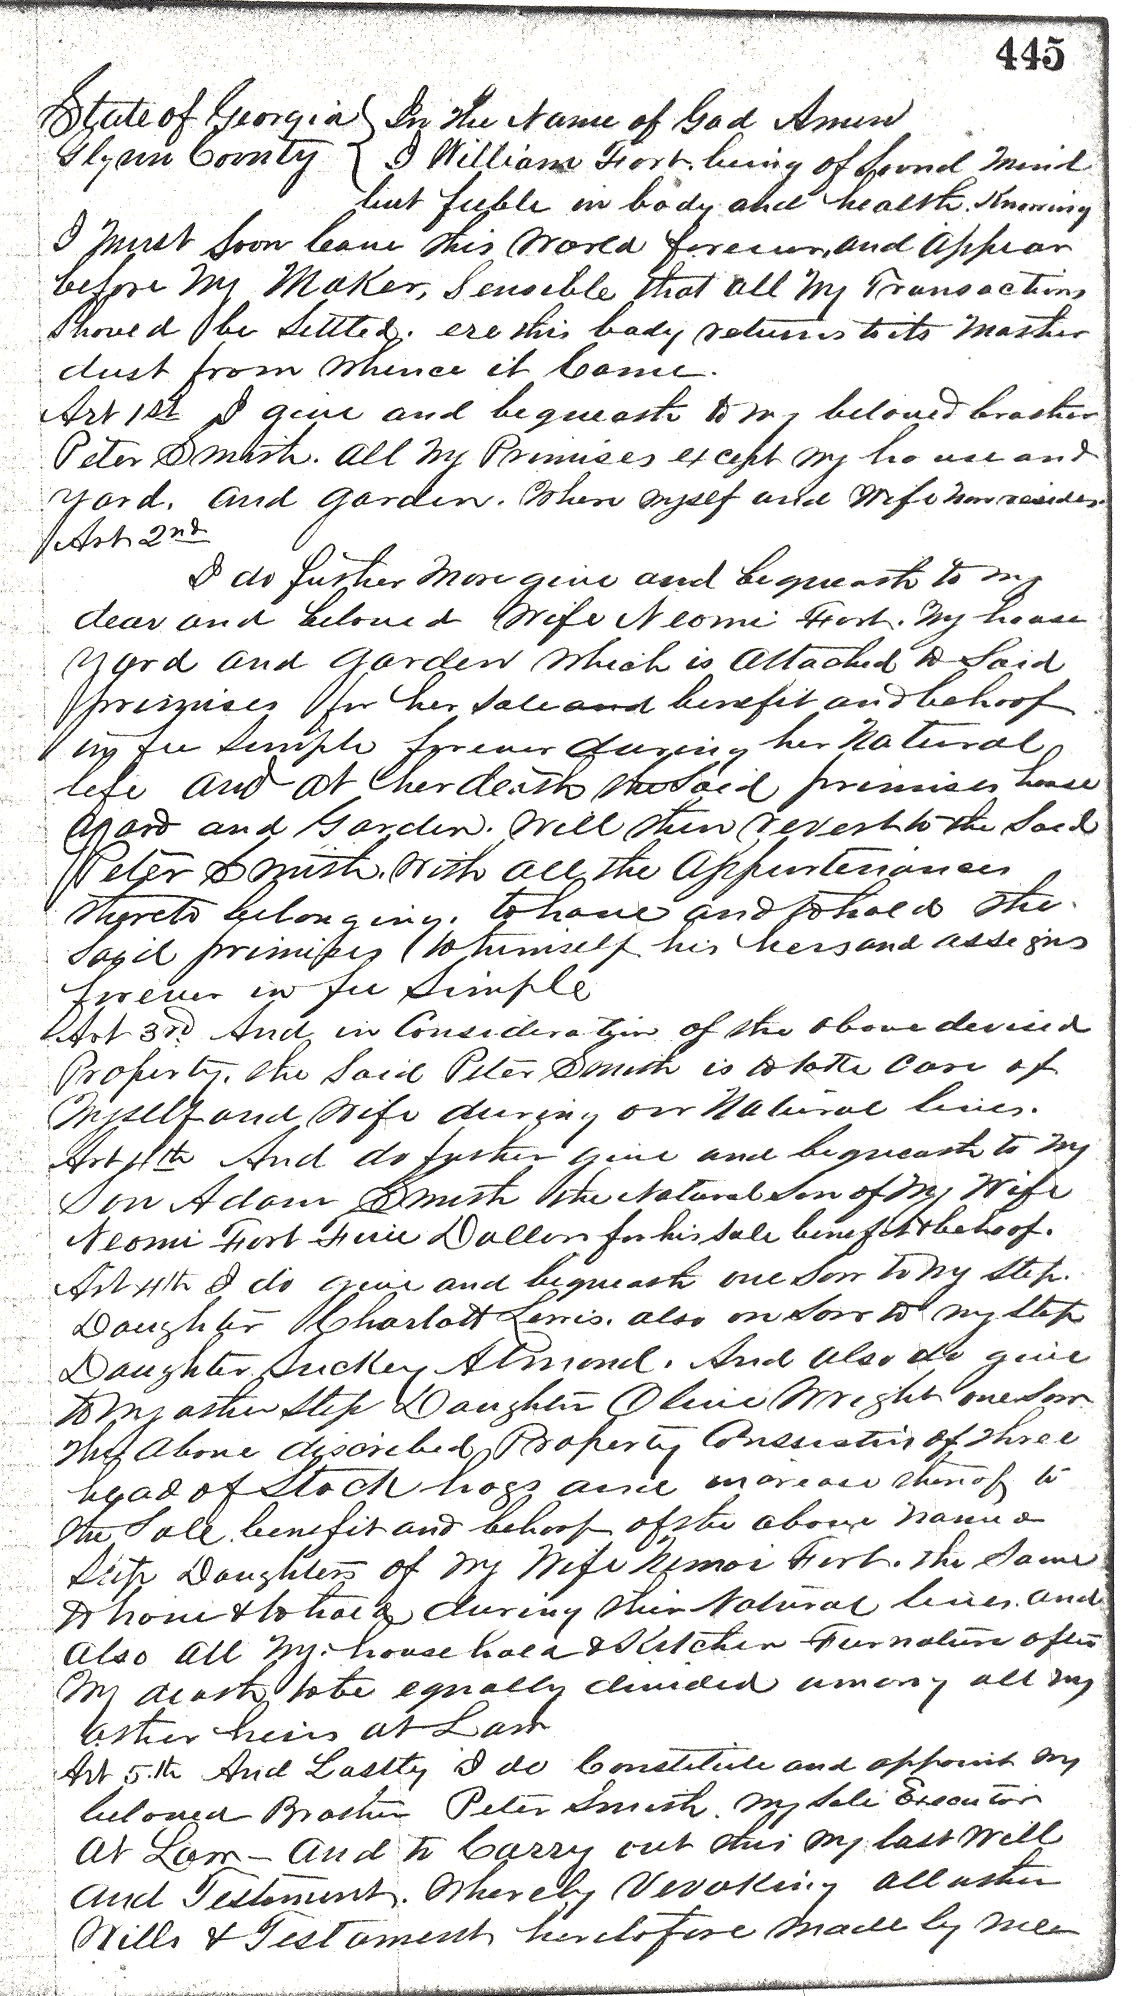 445
State of Georgia } In the Name of God Amen
Glynn County } I William Fort. being of Sound Mind
but feeble in body and health. Knowing
I Must Soon leave this World forever, and appear
before My Maker, Sensible that all My Transactions
Should be Settled. ere this body returns to its Mother
dust from Whence it Came.
Art 1st I give and bequeath to my beloved brother
Peter Smith. all My Premises except my house and
Yard. and garden. Where myself and Wife Now resides
Art 2nd
I do further More give and bequeath to my
dear and beloved Wife Neomi Fort. My house
Yard and Garden Which is Attached to Said
premises for her sole and benefit and behoof
in fee Simple forever during her Natural
life and at her death the Said premises house
Yard and Garden. Will then revert to the Said
Peter Smith. With all the Appurtenances
thereto belonging. to have and to hold the
Said premises to himself his heirs and assigns
forever in fee Simple
Art 3rd And in Consideration of the above devised
Property. the Said Peter Smith is to take Care of
Myself and Wife during our Natural lives.
Art 4th And do further give and bequeath to My
Son Adam Smith the Natural Son of My Wife
Neomi Fort Five Dollors for his sole benefit & behoof.
Art 4th I do give and bequeath one Sow to My Step.
Daughter Charlott Lewis. also on Sow to my Step
Daughter Suckey Almond. And also do give
to My other Step Daughter Olive Wright one Sow
the above discribed Property Conssisting of three
head of Stock hogs and increase thereof to
the Sole benefit and behoof of the above Named
Step Daughters of My Wife Nemoi Fort. the Same
to have & to hold during their Natural lives. and
also all My. household & Kitchen Furnature after
My death to be equally divided among all my
other heirs at Law
Art 5.th And Lastly I do Constitute and appoint My
beloved Brother Peter Smith. My Sole Executor
at Law – and to Carry out this My last Will
and Testament. Whereby Revoking all other
Wills & Testament heretofore made by Me